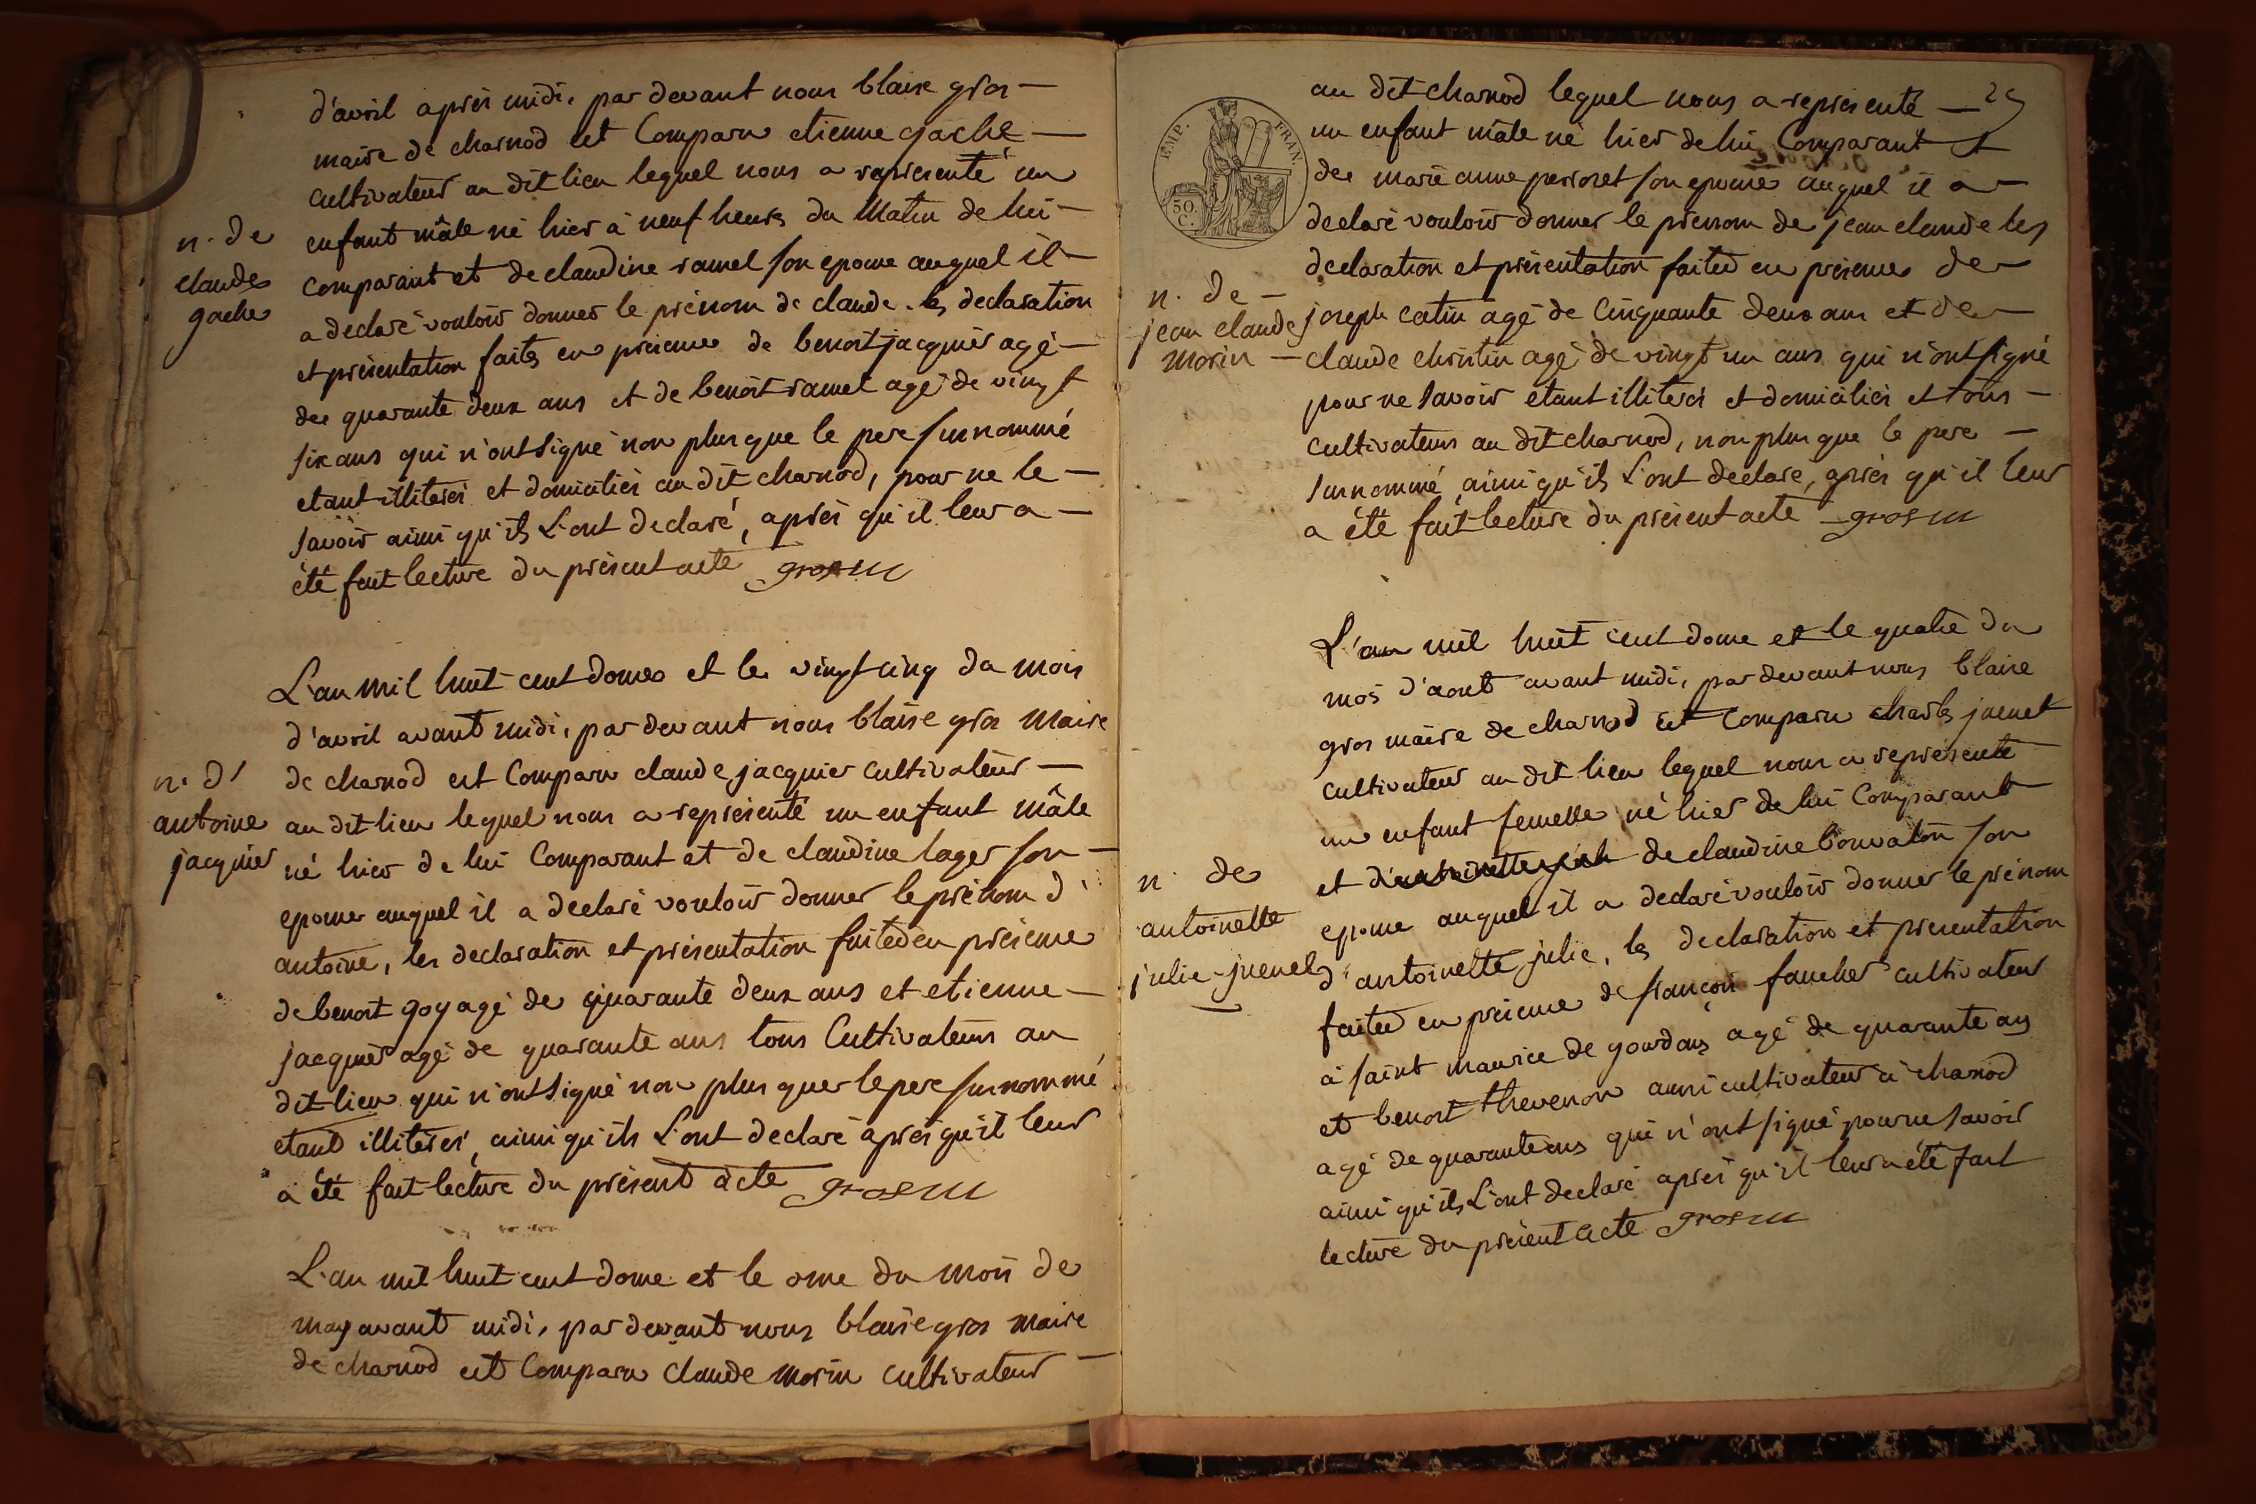 d'avril après midi, par devant nous blaise gros —
maire de charnod est Comparu etienne gache —
cultivateur au dit lieu lequel nous a représenté un
enfant mâle né hier à neuf heures du Matin de lui —
n. de
claude
gache
comparant et de claudine ramel son epouse auquel il —
a declaré vouloir donner le prénom de claude. les declaration
et présentation faites en présence de benoit jacquier agé —
de quarante deux ans et de benoit ramel agé de vingt
six ans qui n'ont signé non plus que le pere surnommé
etant illiterés et domiciliés au dit charnod, pour ne le —
savoir ainsi qu'ils L'ont declaré, après qu'il leur a —
été fait lecture du présent acte gros m
L'an mil huit cent douze et le vingt cinq du mois
d'avril avant midi, par devant nous blaise gros Maire
n. d'
antoine
jacquier
de charnod est Comparu claude jacquier cultivateur —
au dit lieu lequel nous a représenté un enfant mâle
né hier de lui Comparant et de claudine lager son —
epouse auquel il a declaré vouloir donner le prénom d'
antoine, les declaration et présentation faites en présence
de benoit goy agé de quarante deux ans et etienne —
jacquier agé de quarante ans tous Cultivateurs au
dit lieu qui n'ont signé non plus que le pere surnommé
etant illiterés, ainsi qu'ils L'ont declaré après qu'il leur
a été fait lecture du présent acte gros m
L'an mil huit cent douze et le onze du mois de
may avant midi, par devant nous blaise gros maire
de charnod est Comparu Claude Morin cultivateur —
EMP. FRAN.
50.
C.
au dit charnod lequel nous a représenté —
un enfant mâle né hier de lui Comparant et
de marie anne son epouse auquel il a —
declaré vouloir donner le prénom de jean claude les
declaration et présentation faites en présence de —
n. de —
jean claude
morin —
joseph catin agé de Cinquante deux ans et de —
claude christin agé de vingt un ans qui n'ont signé
pour ne savoir etant illiterés et domiciliés et tous —
cultivateurs au dit charnod, non plus que le pere —
surnommé, ainsi qu'ils L'ont declaré, après qu'il leur
a été fait lecture du présent acte — gros m
L'an mil huit cent douze et le quatre du
mois d'aout avant midi, par devant nous blaise
gros maire de charnod est Comparu charles juenet
cultivateur au dit lieu lequel nous a représenté
un enfant femelle né hier de lui Comparant
n. de
antoinette
julie juenet
et de claudine bouvaton son
epouse auquel il a declaré vouloir donner le prénom
d'antoinette julie, les declaration et presentation
faites en présence de françois faucher cultivateur
à saint maurice de gourdans agé de quarante ans
et benoit thevenon aussi cultivateur à charnod
agé de quarante ans qui n'ont signé pour ne savoir
ainsi qu'ils L'ont declaré après qu'il leur a été fait
lecture du présent acte gros m